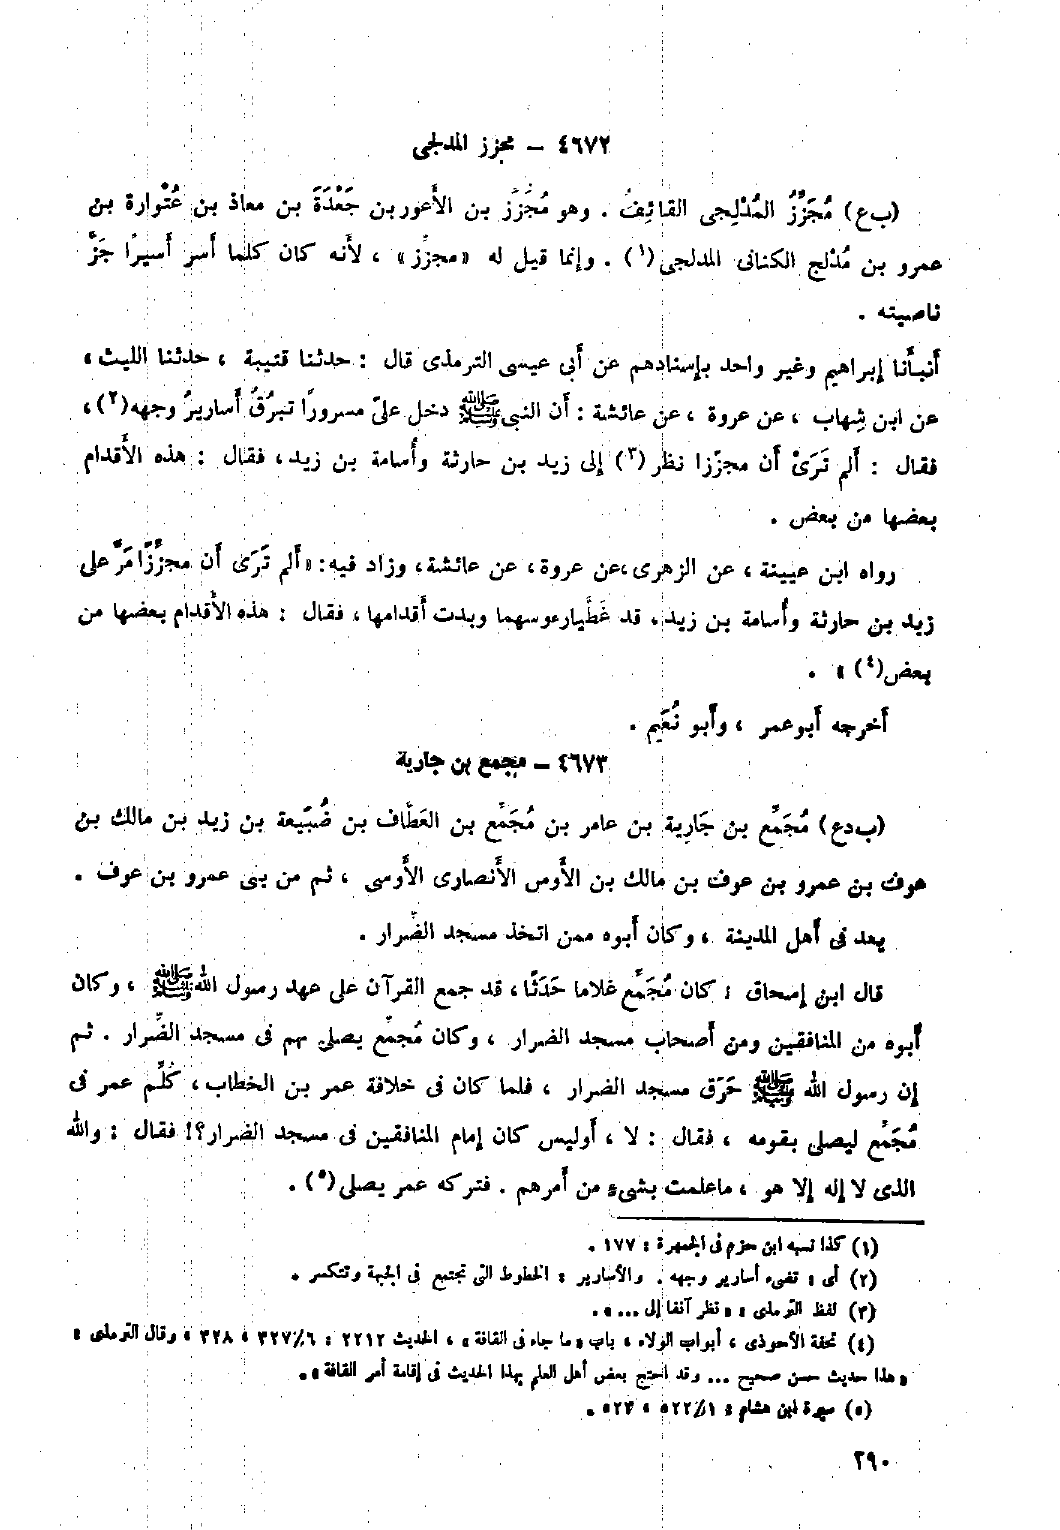 ٤٦٧٢ – مجزز المدلجى
(ب ع) مُجَزِّزٌ المُدْلِجى القائِفُ . وهو مُجَزِّز بن الأَعور بن جَعْدَةَ بن معاذ بن عُتْوارة بن
عمرو بن مُدْلج الكنانى المدلجى(١) . وإنما قيل له «مجزّز» ، لأَنه كان كلما أَسر أَسيرًا جَزَّ
ناصيته .
أَنبأَنا إبراهيم وغير واحد بإسنادهم عن أَبى عيسى الترمذى قال : حدثنا قتيبة ، حدثنا الليث ،
عن ابن شِهاب ، عن عروة ، عن عائشة : أَن النبى ﷺ دخل علىّ مسرورًا تبرُقُ أَساريرُ وجهه(٢) ،
فقال : أَلم تَرَىْ أَن مجزّزا نظر (٣) إلى زيد بن حارثة وأُسامة بن زيد ، فقال : هذه الأَقدام
بعضها من بعض .
رواه ابن عيينة ، عن الزهرى ،عن عروة ، عن عائشة ، وزاد فيه : «أَلم تَرَىْ أَن مجزِّزًا مَرَّ على
زيد بن حارثة وأُسامة بن زيد ، قد غَطَّيا رءوسهما وبدت أَقدامها ، فقال : هذه الأَقدام بعضها من
بعض(٤) » .
أَخرجه أَبو عمر ، وأَبو نُعَيم .
٤٦٧٣ – مجمع بن جارية
(ب د ع) مُجَمِّع بن جَارِية بن عامر بن مُجَمِّع بن العَطَّاف بن ضُبَيعة بن زيد بن مالك بن
عوف بن عمرو بن عوف بن مالك بن الأَوس الأَنصارى الأَوسى ، ثم من بنى عمرو بن عوف .
يعد فى أَهل المدينة ، وكان أَبوه ممن اتخذ مسجد الضِّرار .
قال ابن إسحاق : كان مُجَمِّع غلاما حَدَثًا ، قد جمع القرآن على عهد رسول الله ﷺ ، وكان
أَبوه من المنافقين ومن أَصحاب مسجد الضرار ، وكان مُجمِّع يصلى بهم فى مسجد الضِّرار . ثم
إن رسول الله ﷺ حَرَق مسجد الضرار ، فلما كان فى خلافة عمر بن الخطاب ، كُلِّم عمر فى
مُجَمِّع ليصلى بقومه ، فقال : لا ، أَوليس كان إمام المنافقين فى مسجد الضرار؟! فقال : والله
الذى لا إله إلا هو ، ماعلمت بشىء من أَمرهم . فتركه عمر يصلى(٥) .
(١) كذا نسبه ابن حزم فى الجمهرة : ١٧٧ .
(٢) أى : تضىء أسارير وجهه . والأسارير : الخطوط التى تجتمع فى الجبهة وتتكسر .
(٣) لفظ الترمذى : « نظر آنفا إلى ... » .
(٤) تحفة الأحوذى ، أبواب الولاء ، باب « ما جاء فى القافة » ، الحديث ٢٢١٢ : ٣٢٧/٦ ، ٣٢٨ ، وقال الترمذى :
« هذا حديث حسن صحيح ... وقد احتج بعض أهل العلم بهذا الحديث فى إقامة أمر القافة » .
(٥) سيرة ابن هشام : ٥٢٢/١ ، ٥٢٣ .
٢٩٠